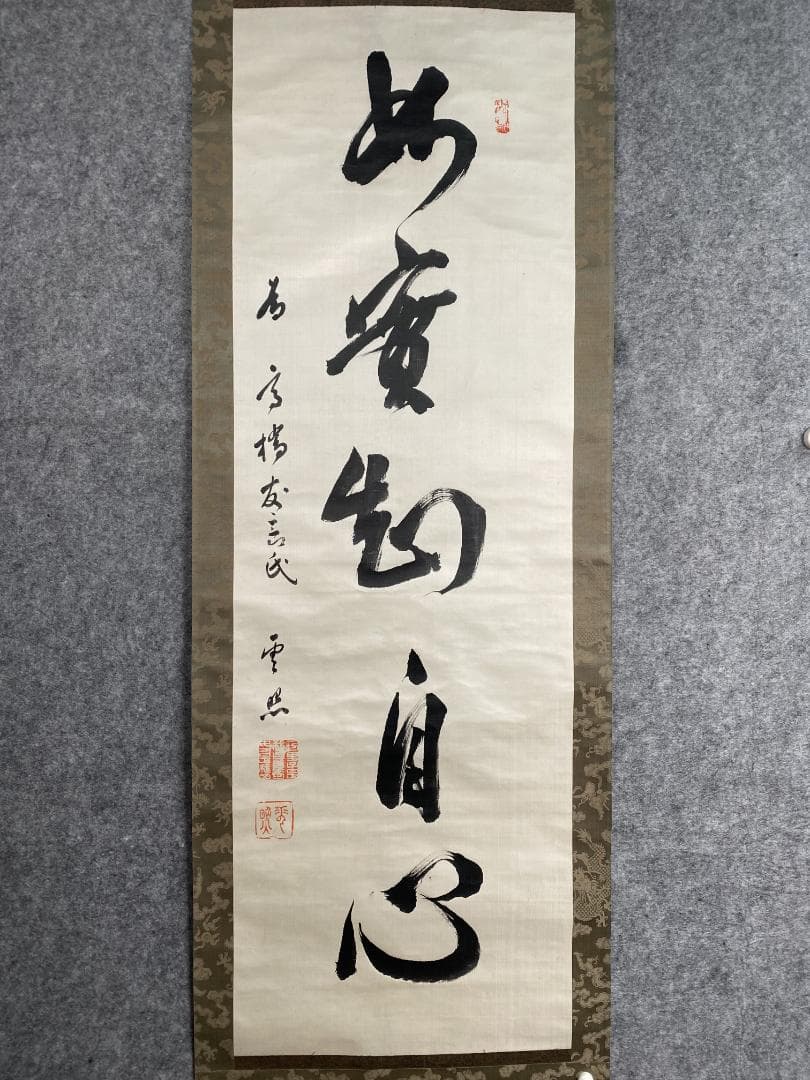 如實知自心
為 高橋友吉氏
雲照